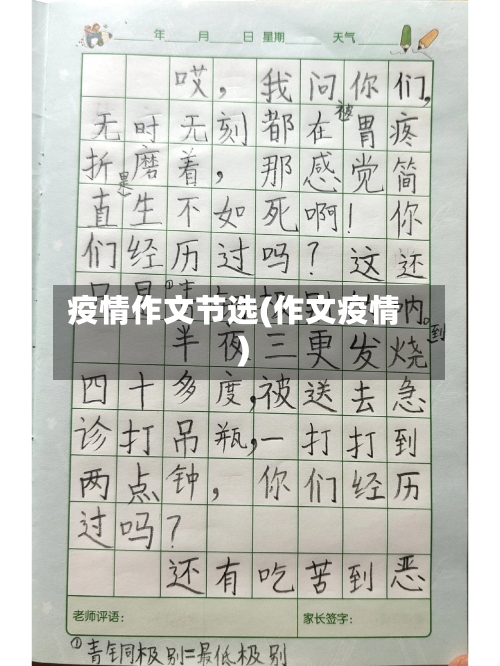 年 月 日 星期 天气
哎，我问你们，
无时无刻都在被胃疼
折磨着，那感觉简
直是生不如死啊！你
们经历过吗？这还
疫情作文节选(作文疫情
)
半夜三更发烧到
四十多度，被送去急
诊打吊瓶，一打打到
两点钟，你们经历
过吗？
还有吃苦到恶
老师评语： 家长签字：
①青铜极别=最低极别